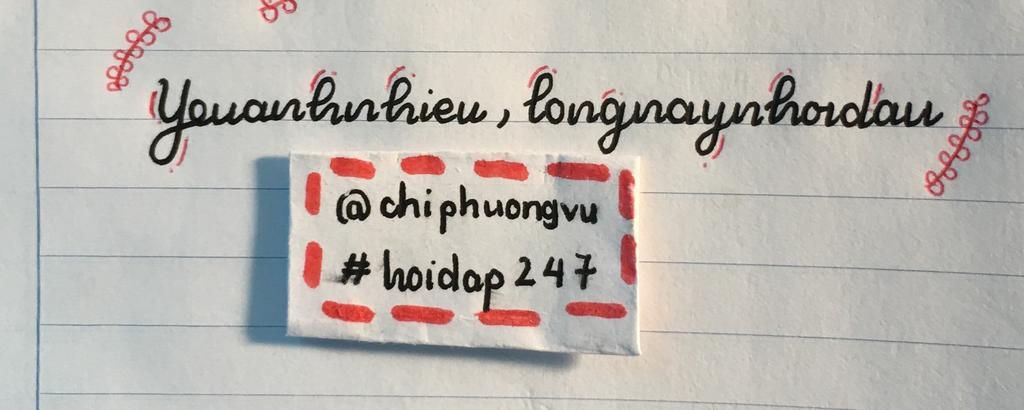 Yeuanhnhieu, longnaynhoidau
@chiphuongvu
#hoidap247